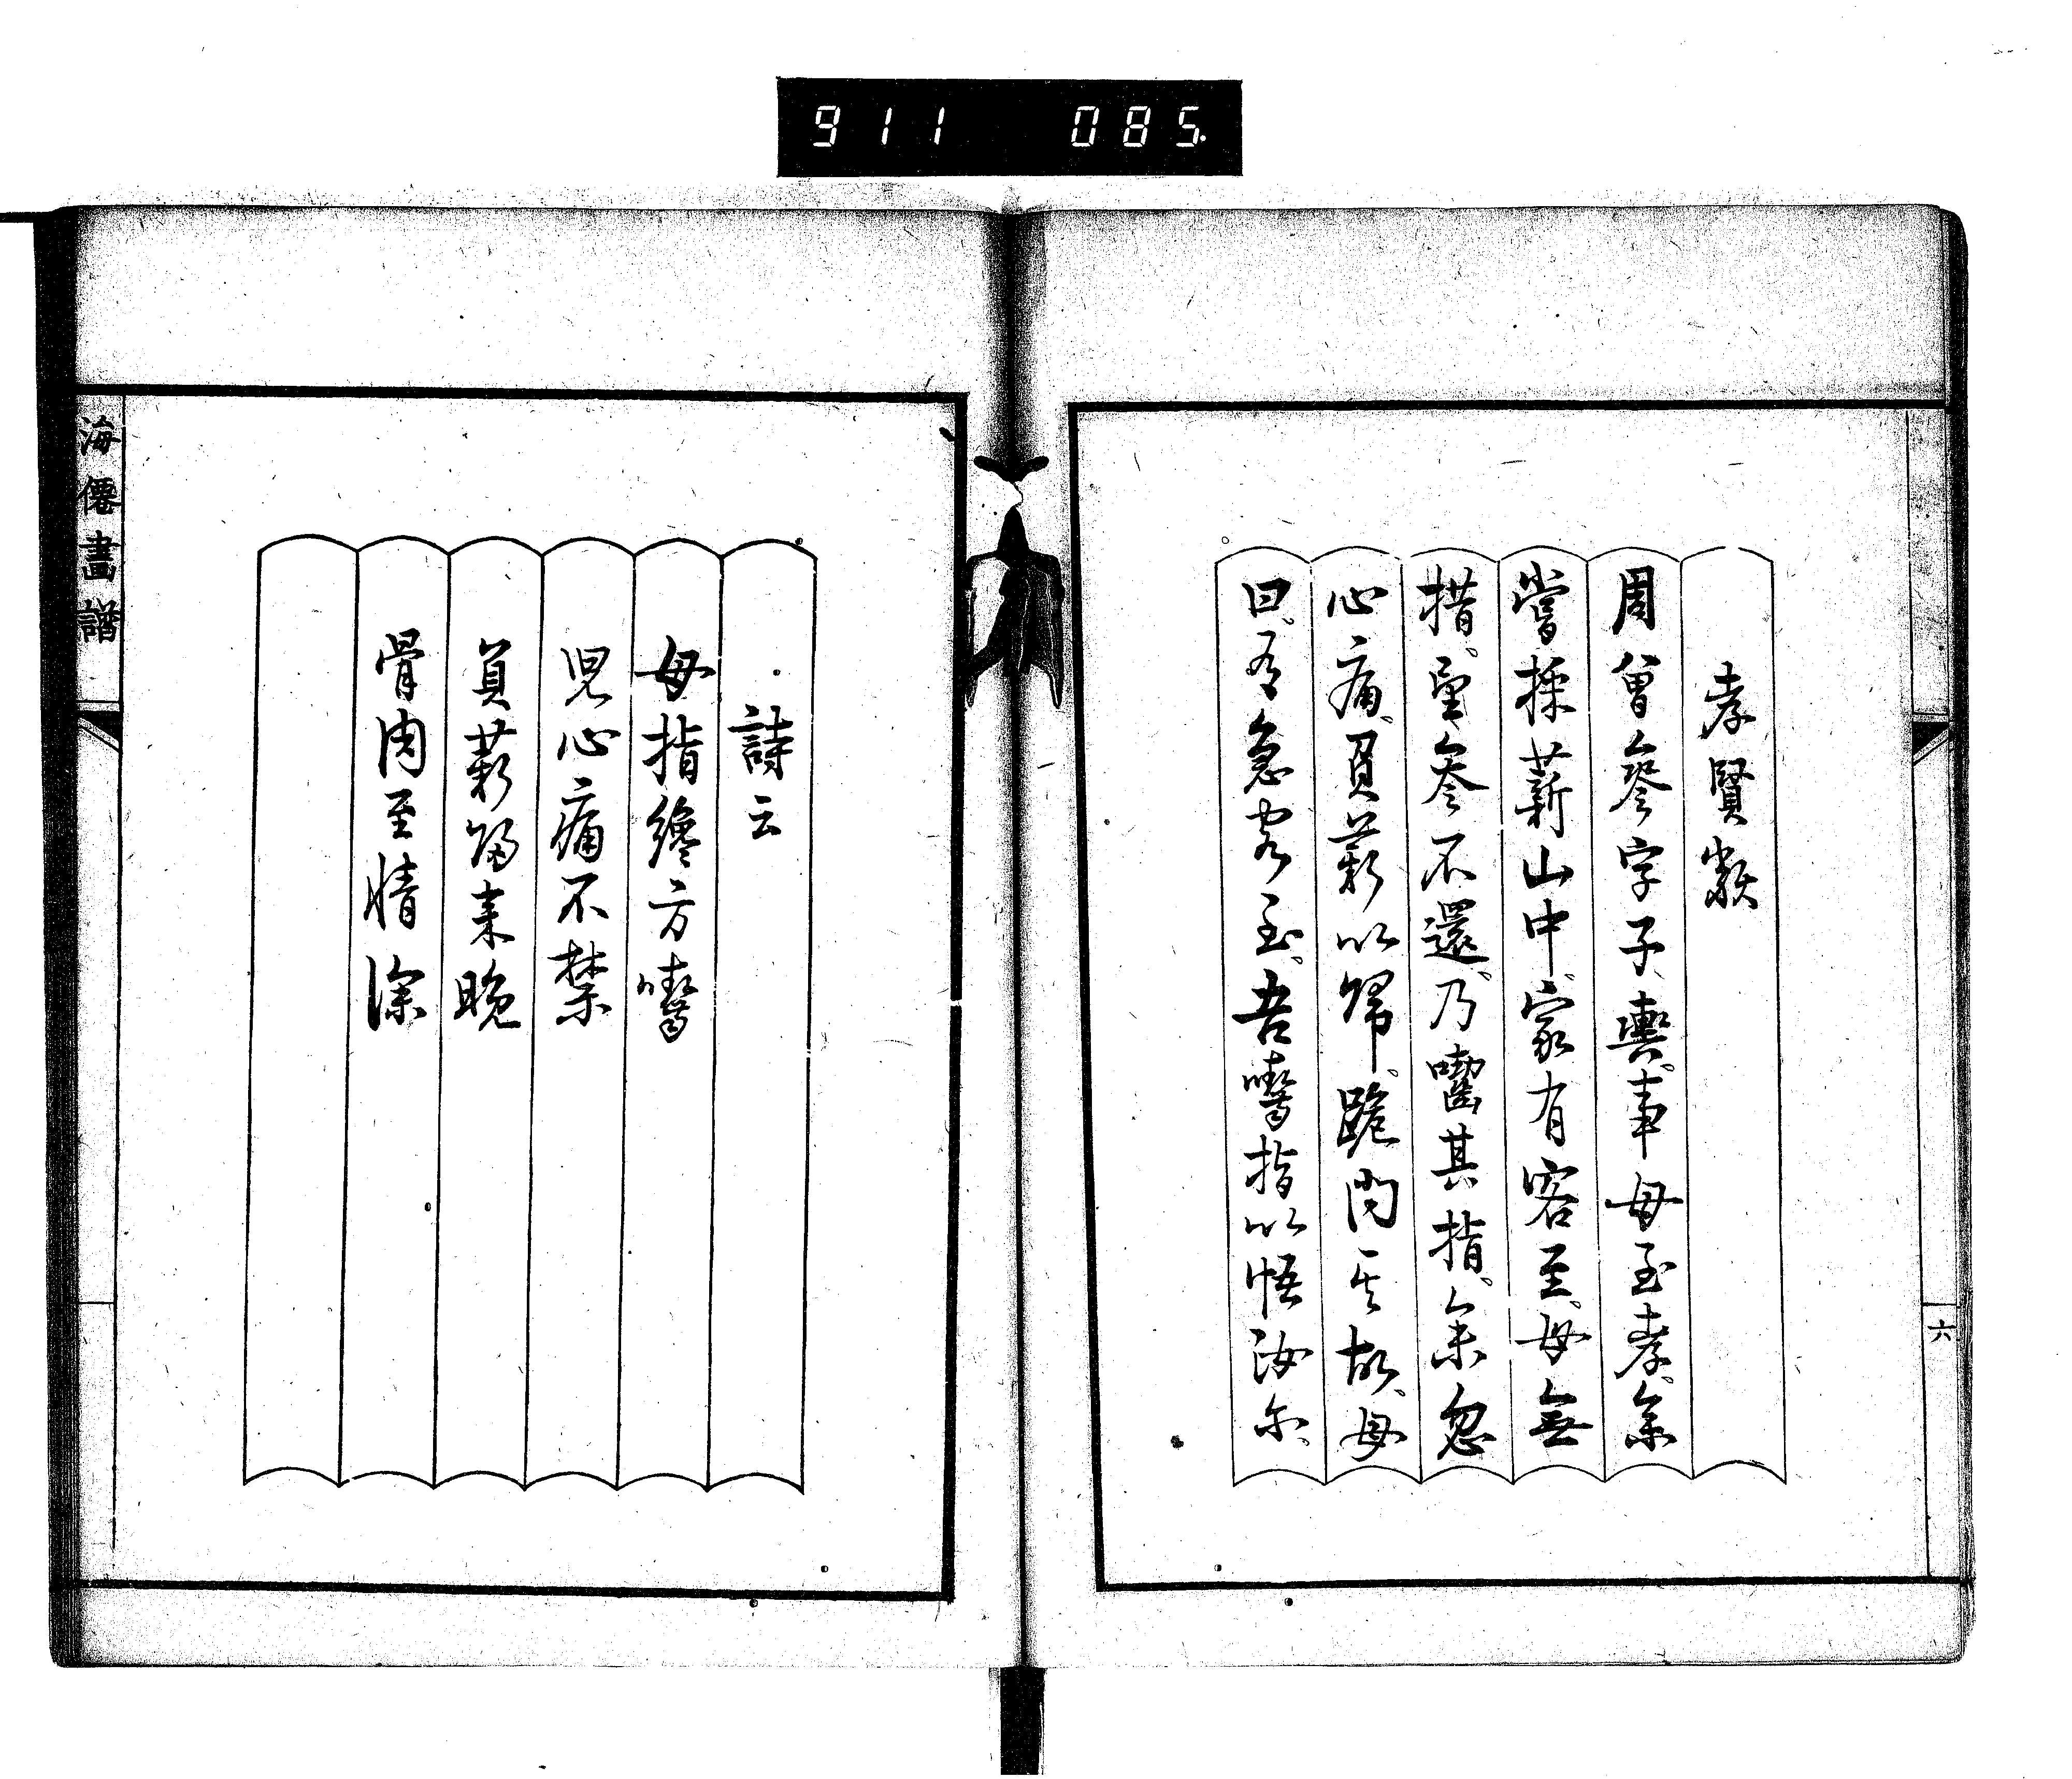 911 085.
六
孝賢類
周曾參字子輿、事母至孝、參
嘗採薪山中、家有客至、母無
措、望參不還、乃嚙其指、參忽
心痛、負薪以歸、跪問其故、母
曰、有急客至、吾嚙指以悟汝尓、
詩云
母指纔方嚙
児心痛不禁
負薪帰来晩
骨肉至情深
海僊畫譜